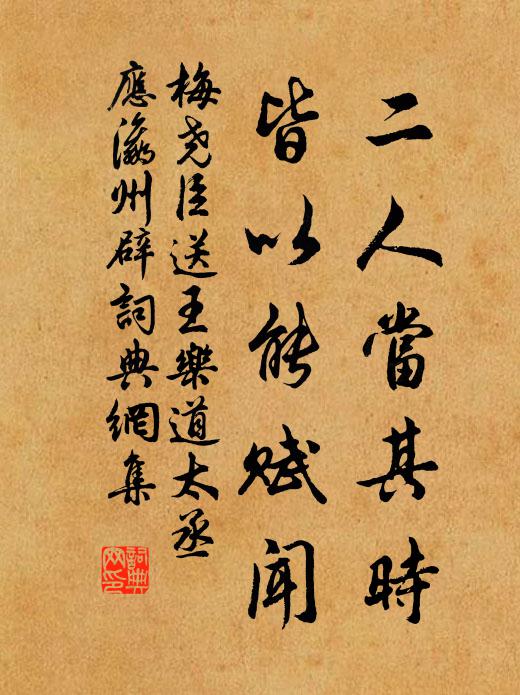 二人當其時
皆以能賦聞
梅尧臣送王樂道太丞
應瀛州辟詞典網集
詞典网印